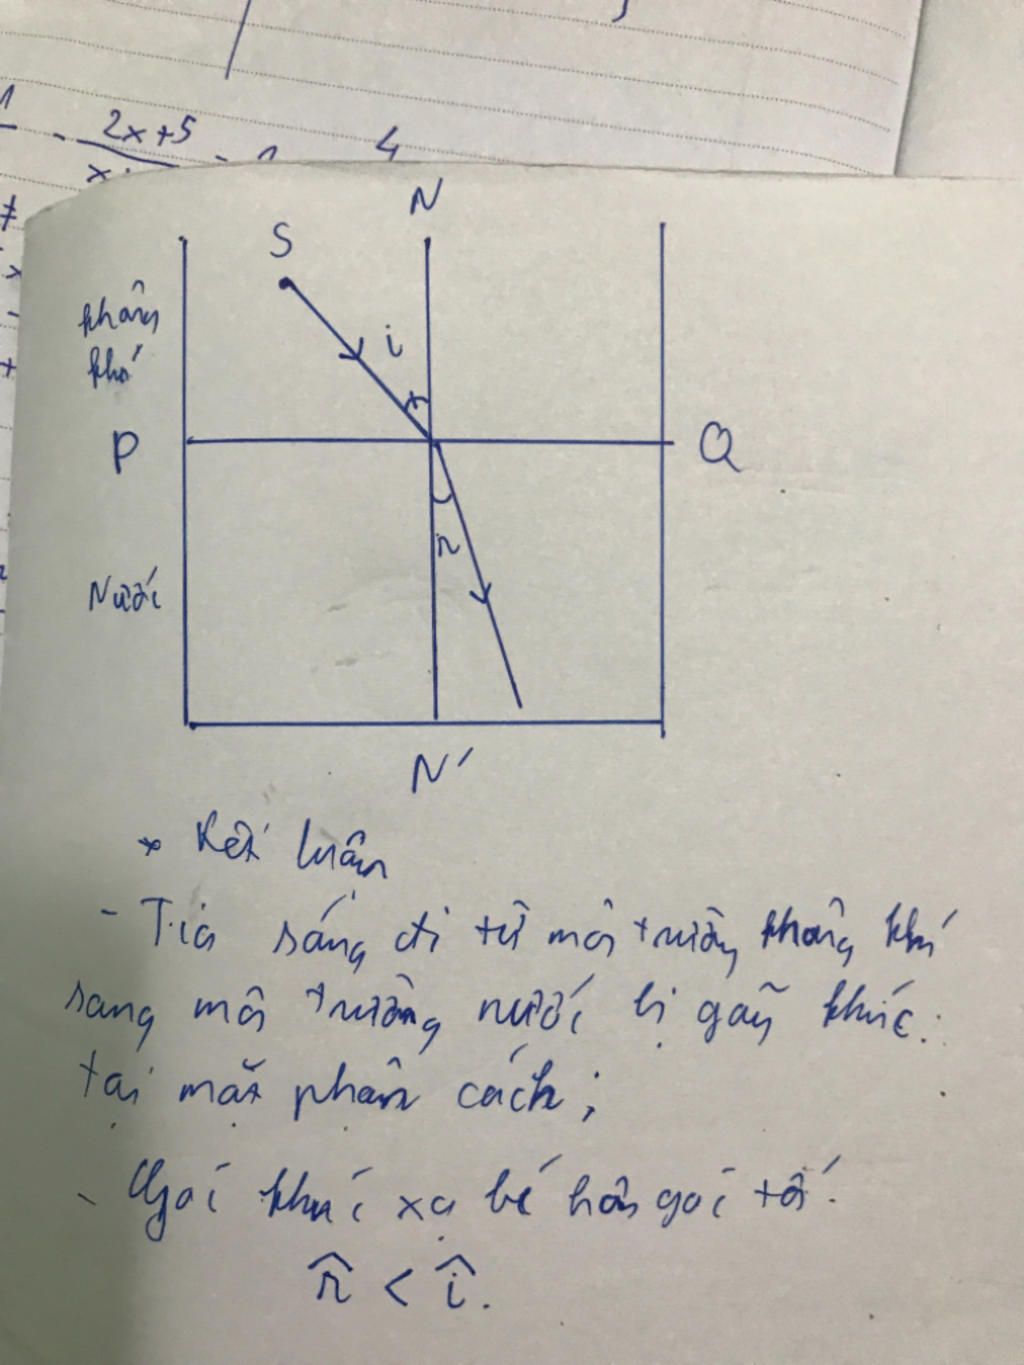 1
2x+5
4
x
N
S
không
khí
i
P
Q
r
Nước
N'
* Kết luận
- Tia sáng đi từ môi trường không khí
sang môi trường nước bị gãy khúc
tại mặt phân cách;
- Góc khúc xạ bé hơn góc tới.
r̂ < î.